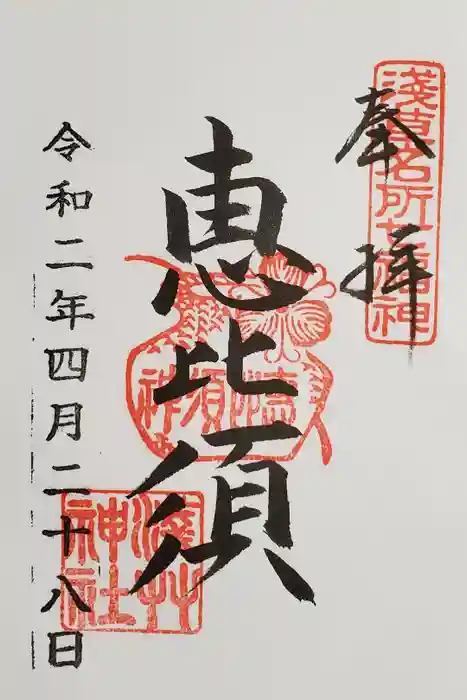 淺草名所七福神
奉拝
恵比須
恵比須神
淺草神社
令和二年四月二十八日